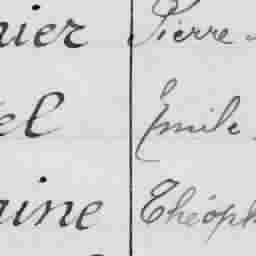 nier Pierre
el Émile
aine Théoph